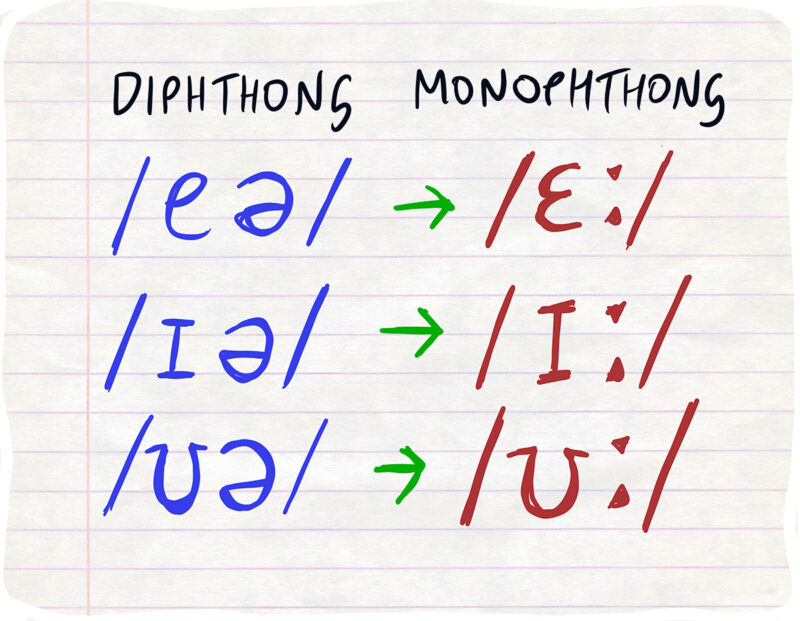 DIPHTHONG MONOPHTHONG
/eə/ → /ɛː/
/ɪə/ → /ɪː/
/ʊə/ → /ʊː/